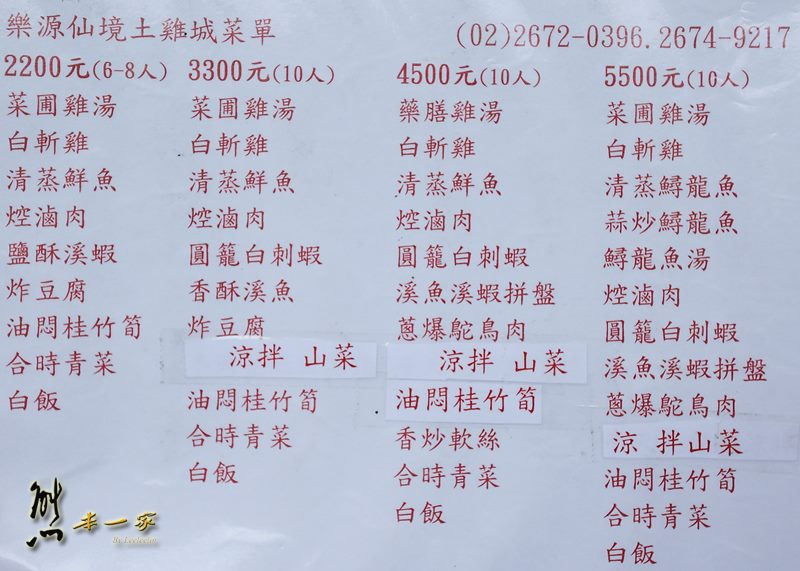 樂源仙境土雞城菜單
(02)2672-0396.2674-9217
2200元(6-8人)
菜圃雞湯
白斬雞
清蒸鮮魚
焢滷肉
鹽酥溪蝦
炸豆腐
油悶桂竹筍
合時青菜
白飯
3300元(10人)
菜圃雞湯
白斬雞
清蒸鮮魚
焢滷肉
圓籠白刺蝦
香酥溪魚
炸豆腐
涼拌 山菜
油悶桂竹筍
合時青菜
白飯
4500元(10人)
藥膳雞湯
白斬雞
清蒸鮮魚
焢滷肉
圓籠白刺蝦
溪魚溪蝦拼盤
蔥爆鴕鳥肉
涼拌 山菜
油悶桂竹筍
香炒軟絲
合時青菜
白飯
5500元(10人)
菜圃雞湯
白斬雞
清蒸鱘龍魚
蒜炒鱘龍魚
鱘龍魚湯
焢滷肉
圓籠白刺蝦
溪魚溪蝦拼盤
蔥爆鴕鳥肉
涼 拌山菜
油悶桂竹筍
合時青菜
白飯
熊本一家